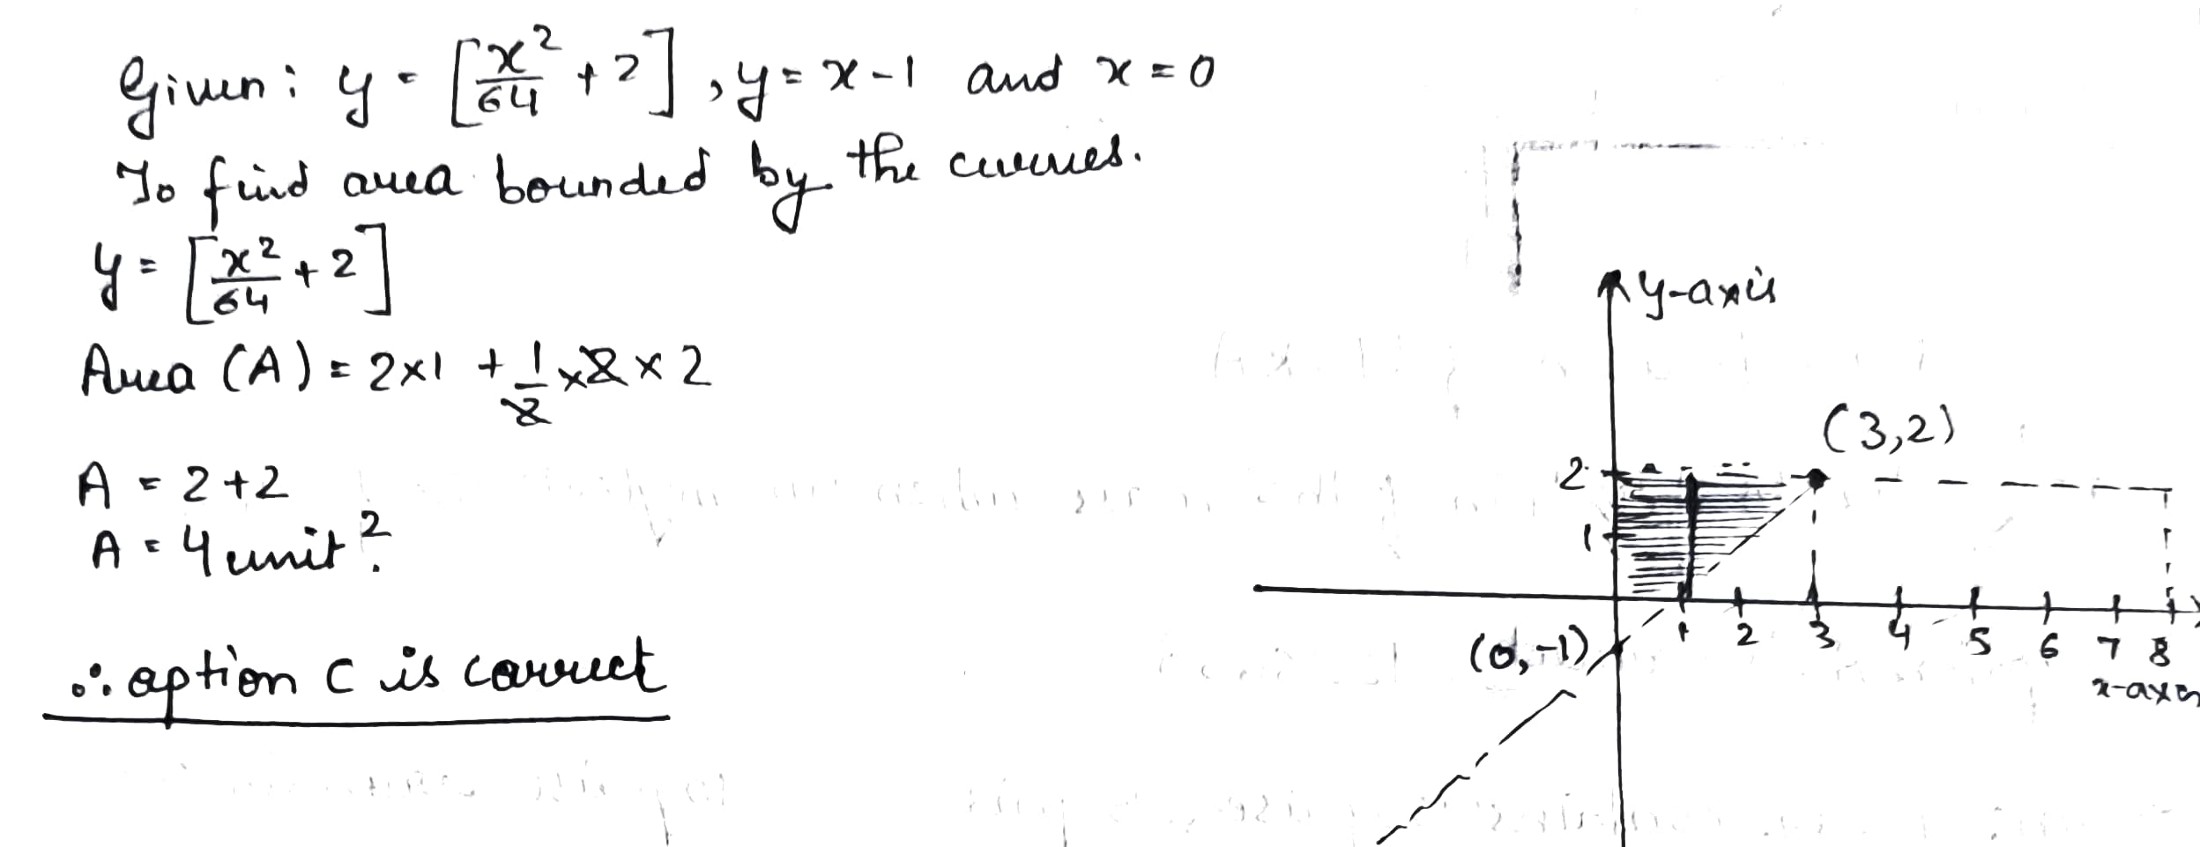 Given: y = [x²/64 + 2], y = x - 1 and x = 0
To find area bounded by the curves.
y = [x²/64 + 2]
Area (A) = 2×1 + 1/2 × 2 × 2
A = 2+2
A = 4 unit².
∴ option C is correct
y-axis
(3,2)
2
1
(0,-1)
1 2 3 4 5 6 7 8
x-axis